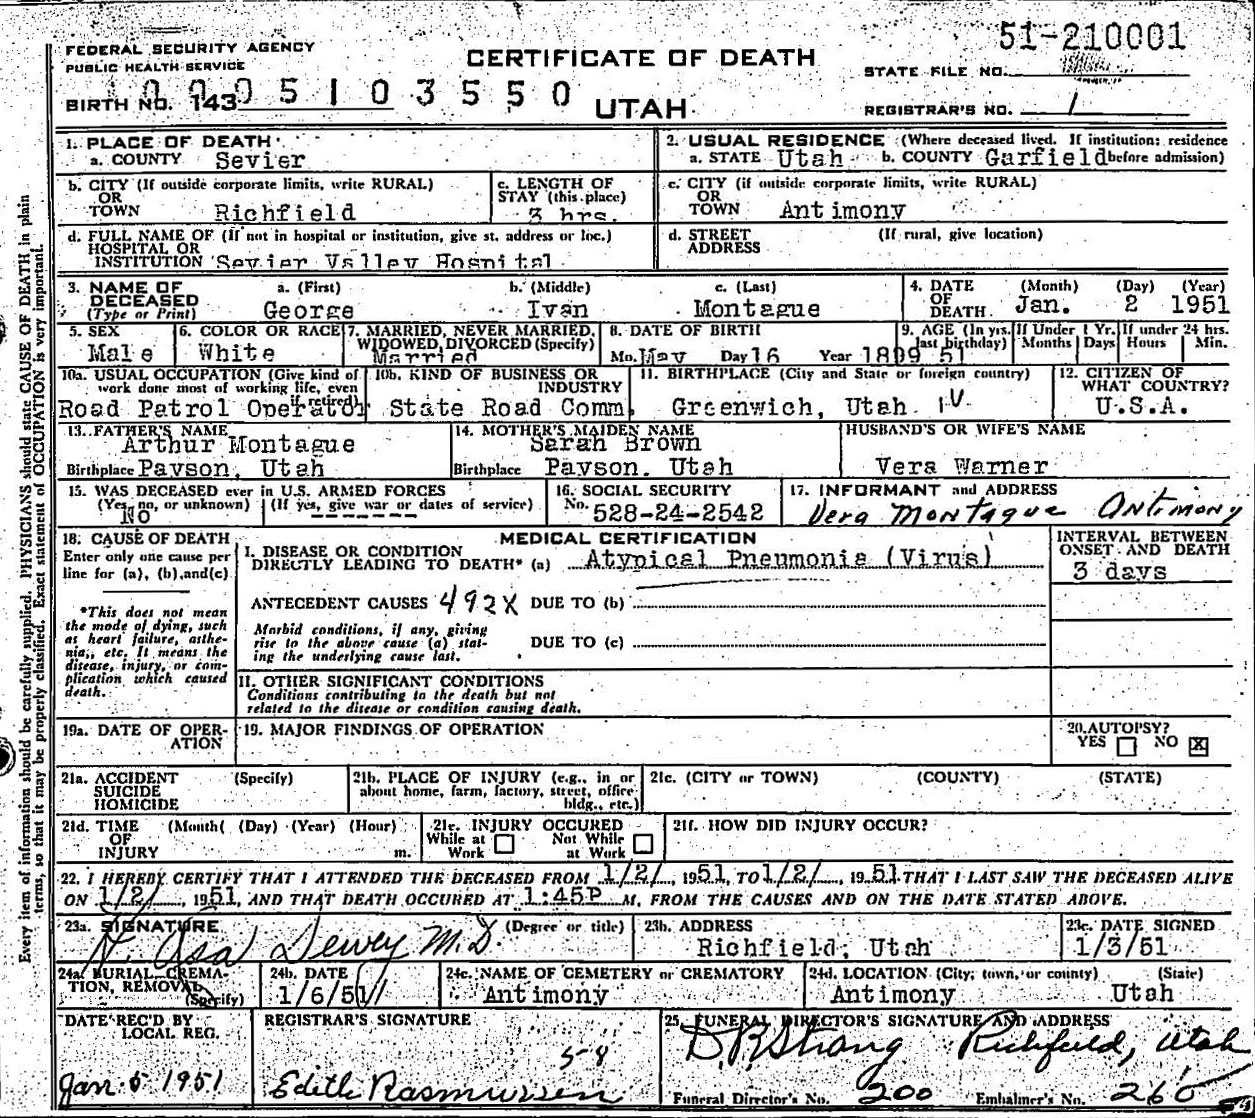 51-210001
FEDERAL SECURITY AGENCY
PUBLIC HEALTH SERVICE
CERTIFICATE OF DEATH
STATE FILE NO.
BIRTH NO. 143
0005103550
UTAH
REGISTRAR'S NO. 1
1. PLACE OF DEATH
a. COUNTY Sevier
2. USUAL RESIDENCE (Where deceased lived. If institution: residence
a. STATE Utah b. COUNTY Garfield before admission)
b. CITY (If outside corporate limits, write RURAL)
OR
TOWN Richfield
c. LENGTH OF
STAY (this place)
3 hrs.
c. CITY (if outside corporate limits, write RURAL)
OR
TOWN Antimony
d. FULL NAME OF (If not in hospital or institution, give st. address or loc.)
HOSPITAL OR
INSTITUTION Sevier Valley Hospital
d. STREET (If rural, give location)
ADDRESS
3. NAME OF DECEASED (Type or Print)
a. (First) b. (Middle) c. (Last)
George Ivan Montague
4. DATE OF DEATH
(Month) (Day) (Year)
Jan. 2 1951
5. SEX
Male
6. COLOR OR RACE
White
7. MARRIED, NEVER MARRIED,
WIDOWED, DIVORCED (Specify)
Married
8. DATE OF BIRTH
Mo. May Day 16 Year 1899
9. AGE (In yrs. last birthday)
51
If Under 1 Yr.
Months Days
If under 24 hrs.
Hours Min.
10a. USUAL OCCUPATION (Give kind of
work done most of working life, even
if retired)
Road Patrol Operator
10b. KIND OF BUSINESS OR
INDUSTRY
State Road Comm.
11. BIRTHPLACE (City and State or foreign country)
Greenwich, Utah
12. CITIZEN OF
WHAT COUNTRY?
U.S.A.
13. FATHER'S NAME
Arthur Montague
Birthplace Payson, Utah
14. MOTHER'S MAIDEN NAME
Sarah Brown
Birthplace Payson, Utah
HUSBAND'S OR WIFE'S NAME
Vera Warner
15. WAS DECEASED ever in U.S. ARMED FORCES
(Yes, no, or unknown) (If yes, give war or dates of service)
No
16. SOCIAL SECURITY
No. 528-24-2542
17. INFORMANT and ADDRESS
Vera Montague Antimony
18. CAUSE OF DEATH
Enter only one cause per
line for (a), (b), and (c)
*This does not mean
the mode of dying, such
as heart failure, asthe-
nia, etc. It means the
disease, injury, or com-
plication which caused
death.
MEDICAL CERTIFICATION
I. DISEASE OR CONDITION
DIRECTLY LEADING TO DEATH* (a) Atypical Pneumonia (Virus)
ANTECEDENT CAUSES 492X DUE TO (b)
Morbid conditions, if any, giving
rise to the above cause (a) stat-
ing the underlying cause last.
DUE TO (c)
II. OTHER SIGNIFICANT CONDITIONS
Conditions contributing to the death but not
related to the disease or condition causing death.
INTERVAL BETWEEN
ONSET AND DEATH
3 days
19a. DATE OF OPER-
ATION
19. MAJOR FINDINGS OF OPERATION
20. AUTOPSY?
YES NO X
21a. ACCIDENT (Specify)
SUICIDE
HOMICIDE
21b. PLACE OF INJURY (e.g., in or
about home, farm, factory, street, office
bldg., etc.)
21c. (CITY or TOWN) (COUNTY) (STATE)
21d. TIME (Month( (Day) (Year) (Hour)
OF
INJURY m.
21e. INJURY OCCURED
While at Work
Not While at Work
21f. HOW DID INJURY OCCUR?
22. I HEREBY CERTIFY THAT I ATTENDED THE DECEASED FROM 1/2/, 1951, TO 1/2/, 1951 THAT I LAST SAW THE DECEASED ALIVE
ON 1/2/, 1951, AND THAT DEATH OCCURED AT 1:45P M, FROM THE CAUSES AND ON THE DATE STATED ABOVE.
23a. SIGNATURE (Degree or title)
H. Asa Dewey M.D.
23b. ADDRESS
Richfield, Utah
23c. DATE SIGNED
1/3/51
24a. BURIAL, CREMA-
TION, REMOVAL
(Specify)
24b. DATE
1/6/51
24c. NAME OF CEMETERY or CREMATORY
Antimony
24d. LOCATION (City, town, or county) (State)
Antimony Utah
DATE REC'D BY
LOCAL REG.
Jan. 5 1951
REGISTRAR'S SIGNATURE
5-8
Edith Rasmussen
25. FUNERAL DIRECTOR'S SIGNATURE AND ADDRESS
Richfield, Utah
Funeral Director's No. 200 Embalmer's No. 260
Every item of information should be carefully supplied. PHYSICIANS should state CAUSE OF DEATH in plain
terms, so that it may be properly classified. Exact statement of OCCUPATION is very important.